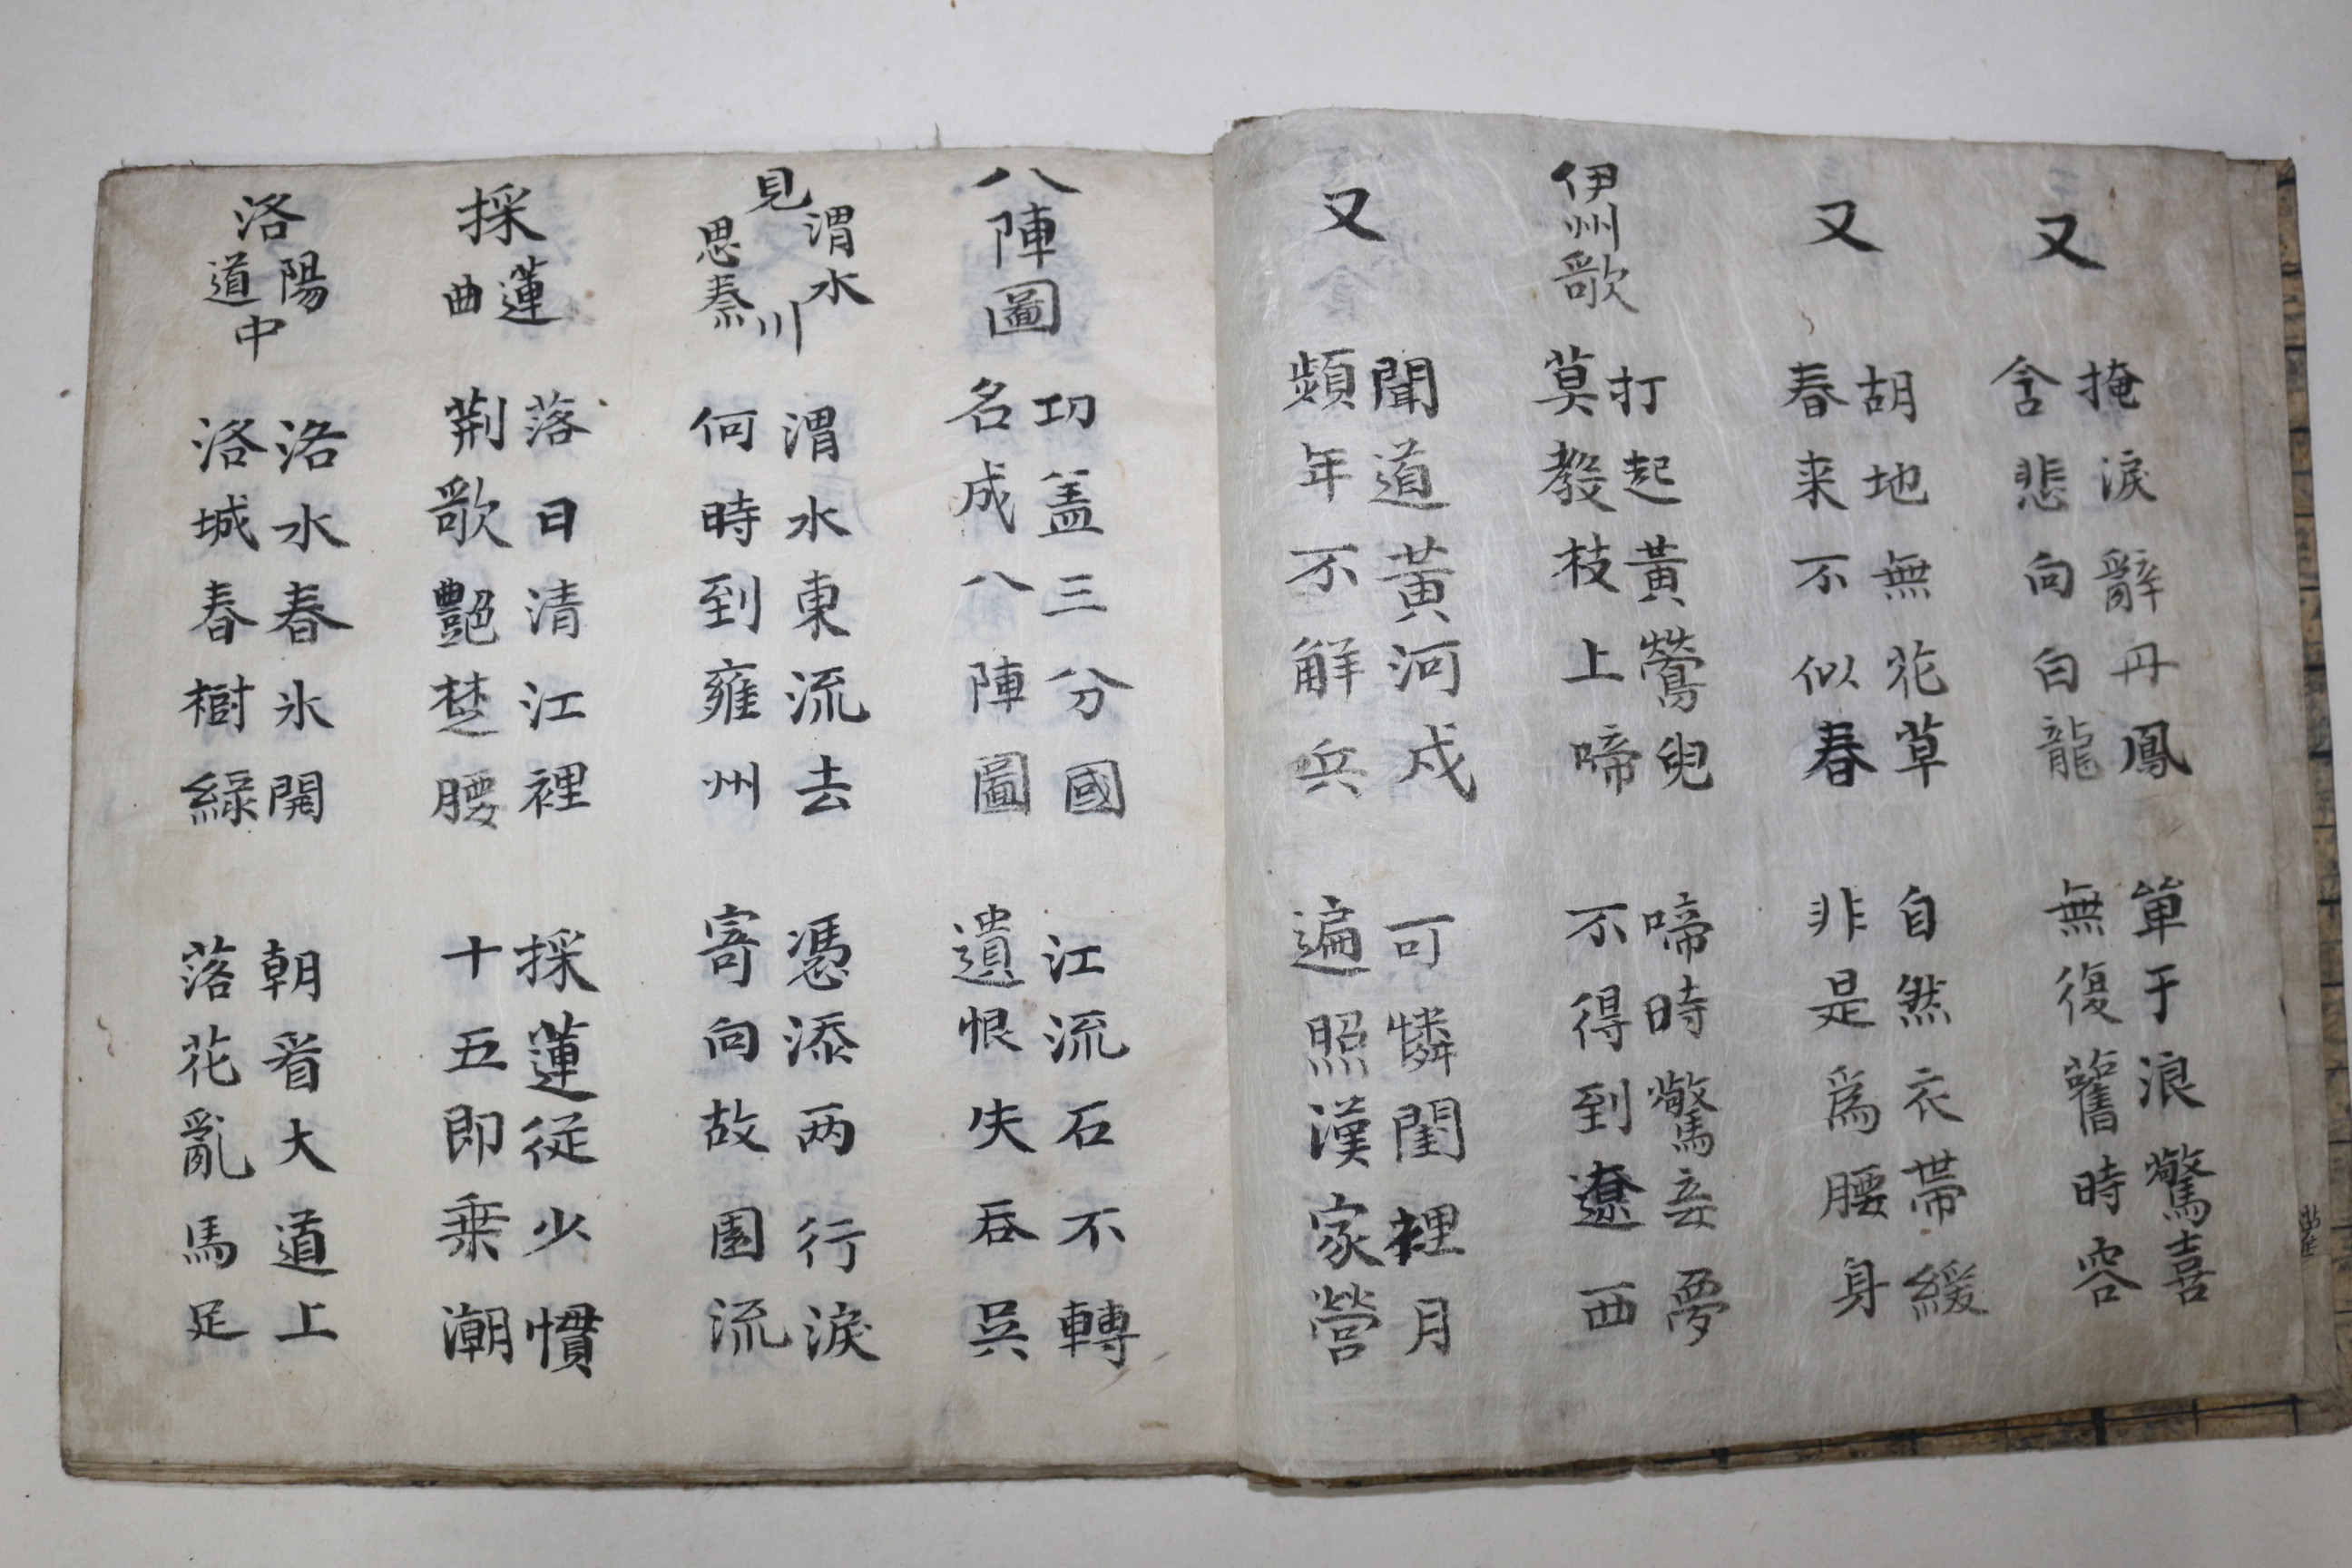 又
掩淚辭丹鳳
含悲向白龍
單于浪驚喜
無復舊時容
又
胡地無花草
春来不似春
自然衣帶緩
非是爲腰身
伊州歌
打起黃鶯兒
莫敎枝上啼
啼時驚妾夢
不得到遼西
又
聞道黃河戍
頻年不解兵
可憐閨裡月
遍照漢家營
八陣圖
功盖三分國
名成八陣圖
江流石不轉
遺恨失呑吳
見渭水思秦川
渭水東流去
何時到雍州
憑添两行淚
寄向故園流
採蓮曲
落日清江裡
荆歌艶楚腰
採蓮從少慣
十五即乗潮
洛陽道中
洛水春氷開
洛城春樹綠
朝看大道上
落花亂馬足